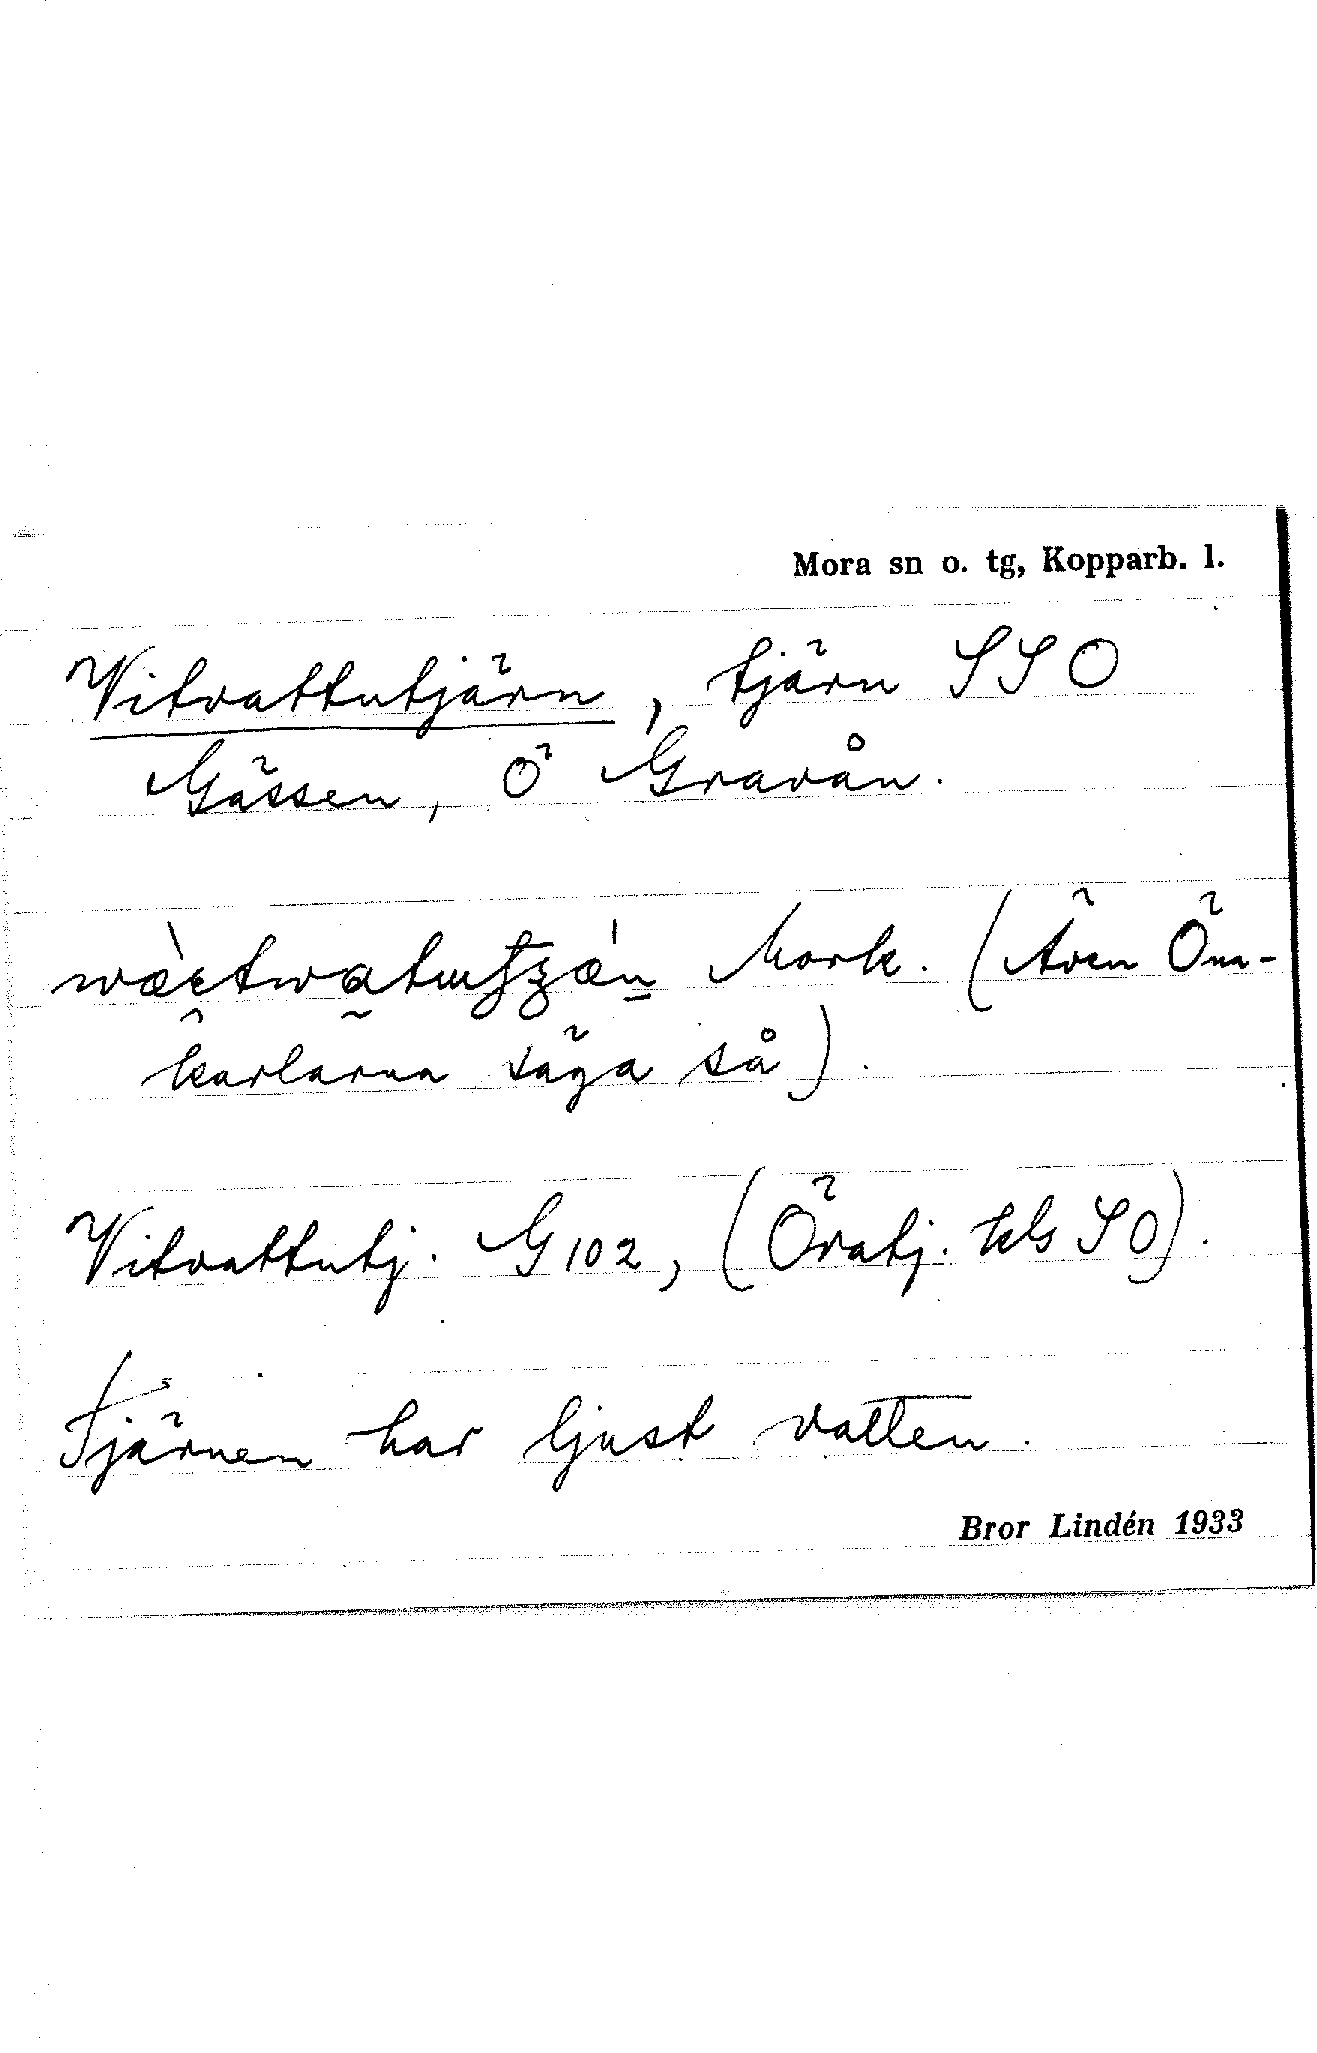 Mora sn o. tg, Kopparb. l.
Vitvattutjärn, tjärn SSO
Gässen, Ö Gravån.
Mork. (Även Öna-
karlarna säga så).
Vitvattutj. G102, (Öratj. kls SO).
Tjärnen har ljust vatten.
Bror Lindén 1933